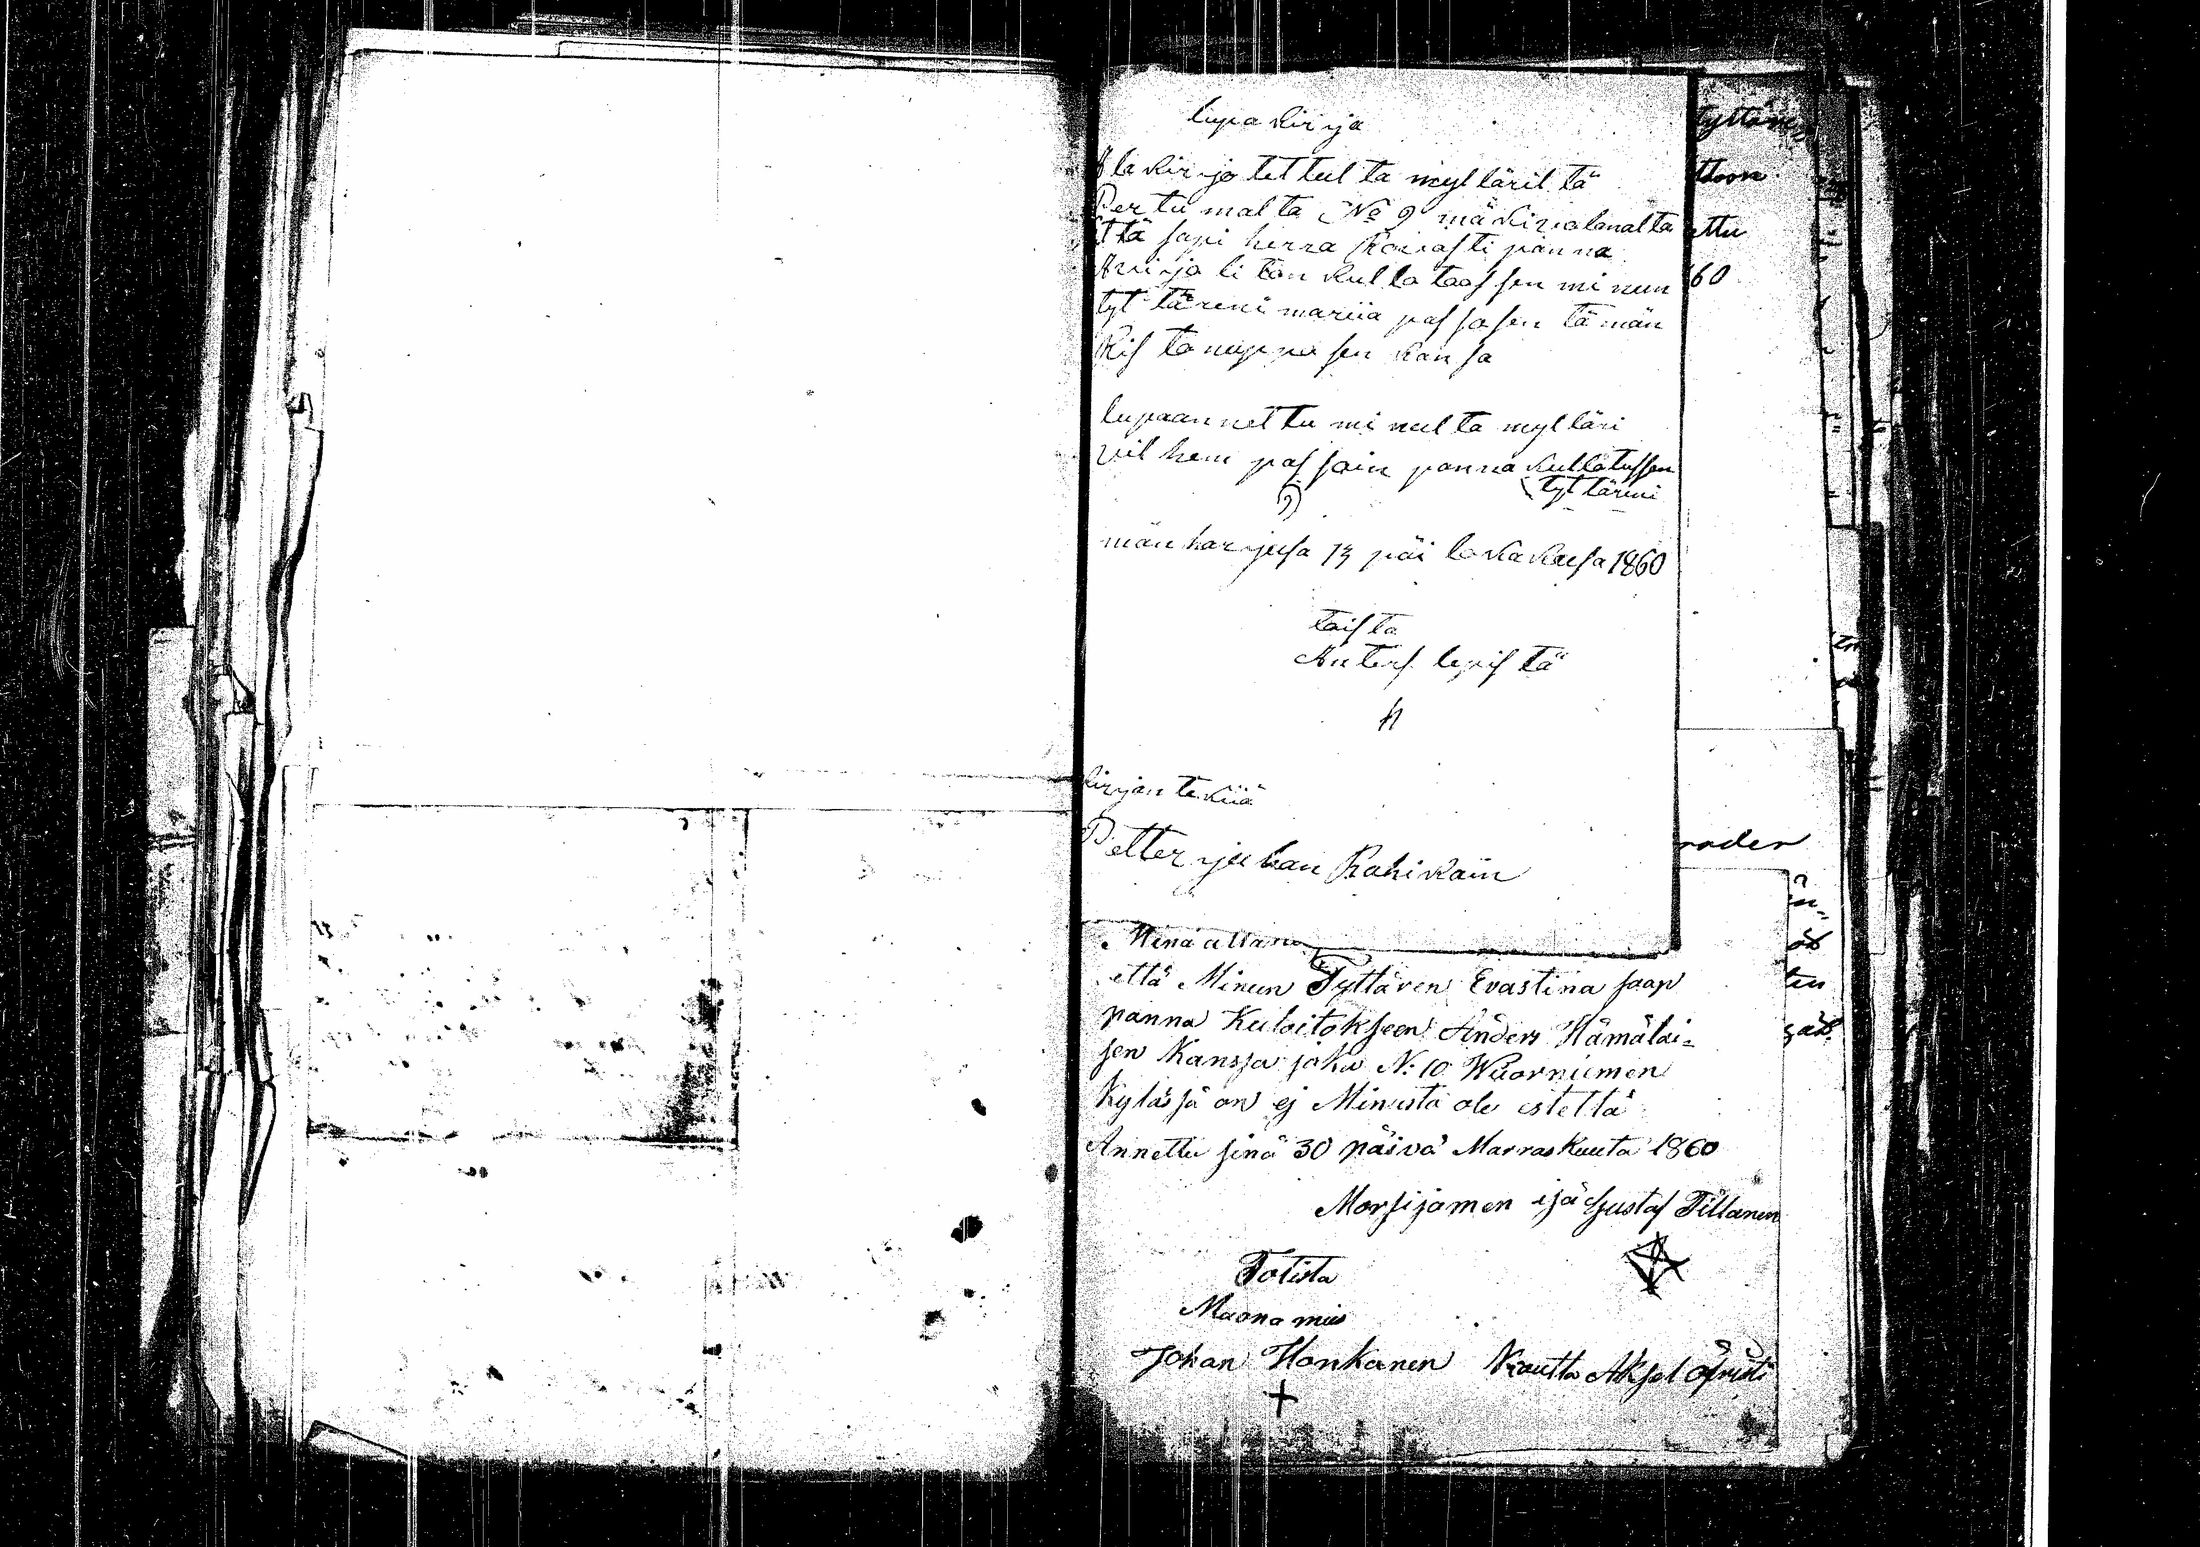 lupa kirja
Ala kirjo tet tul ta myl läril tä
Per tu mal ta No 9 mäkiralanalta
ttä sapi herra Rovasti panna
Avi jo li ton kul la taas sen mi nun
tyt täreni mariia pas sosen tämän
Ris to nuppo sen kan sa
lupaan net tu mi nul ta myl läri
vil hem pas soin panna kullatussen
tyt täreni
män har jusa 13 päi lokakusa 1860
tois ta
Anters lepis tä
kirjan tekiiä
Petter juhan Rahikain
Minä allan
että Minun Tyttären Evastina saap
panna Kuloitokseen Anders Hämäläi=
sen Kanssa joka N: 10 Wuorniemen
Kylässä on ej Minusta ole estettä
Annettu sinä 30 päivä Marraskuuta 1860
Morsijamen isä Gustaf Tillanen
Totista
Maana mies
Johan Honkanen Kautta Aksel
+
Tyttären
ttoon
ettu
60